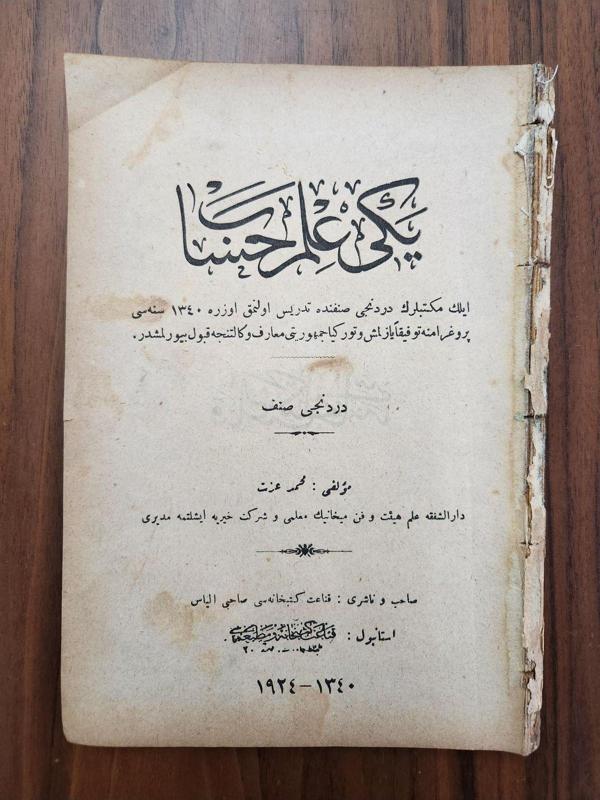 یكی علم حساب
ایلك مكتبلرك دردنجی صنفنده تدریس اولنمق اوزره ١٣٤٠ سنه‌سی
پروغرامنه توفیقاً یازلمش و توركیا جمهوریتی معارف وكالتنجه قبول بیورلمشدر.
دردنجی صنف
مؤلفی : محمد عزت
دارالشفقه علم هیئت و فن میخانیك معلمی و شركت خیریه ایشلتمه مدیری
صاحب و ناشری : قناعت كتبخانه‌سی صاحبی الیاس
استانبول : قناعت كتبخانه و مطبعه‌سی
١٣٤٠ – ١٩٢٤